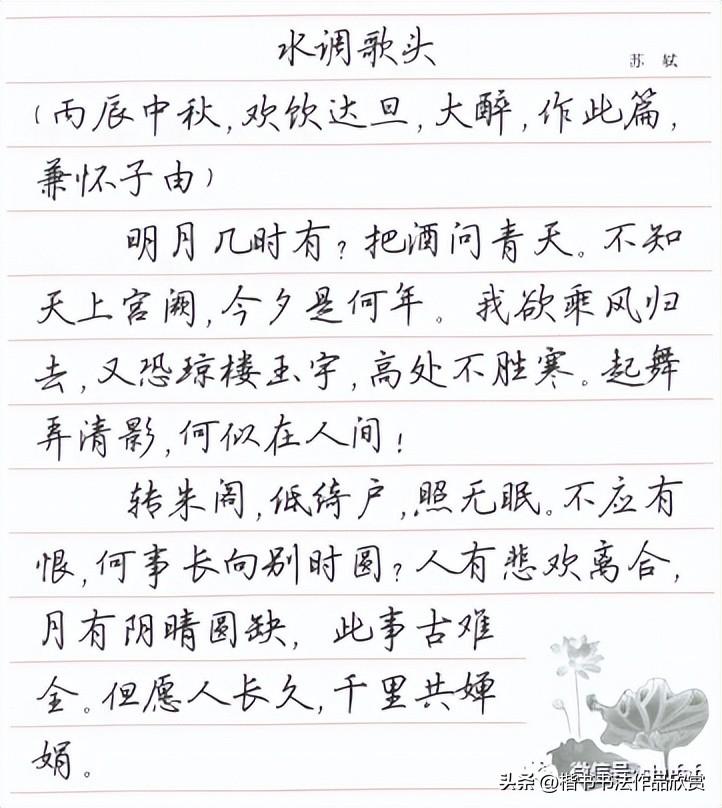 水调歌头
苏 轼
(丙辰中秋,欢饮达旦,大醉,作此篇,
兼怀子由)
明月几时有?把酒问青天。不知
天上宫阙,今夕是何年。我欲乘风归
去,又恐琼楼玉宇,高处不胜寒。起舞
弄清影,何似在人间!
转朱阁,低绮户,照无眠。不应有
恨,何事长向别时圆?人有悲欢离合,
月有阴晴圆缺,此事古难
全。但愿人长久,千里共婵
娟。
微信号
头条 @楷书书法作品欣赏